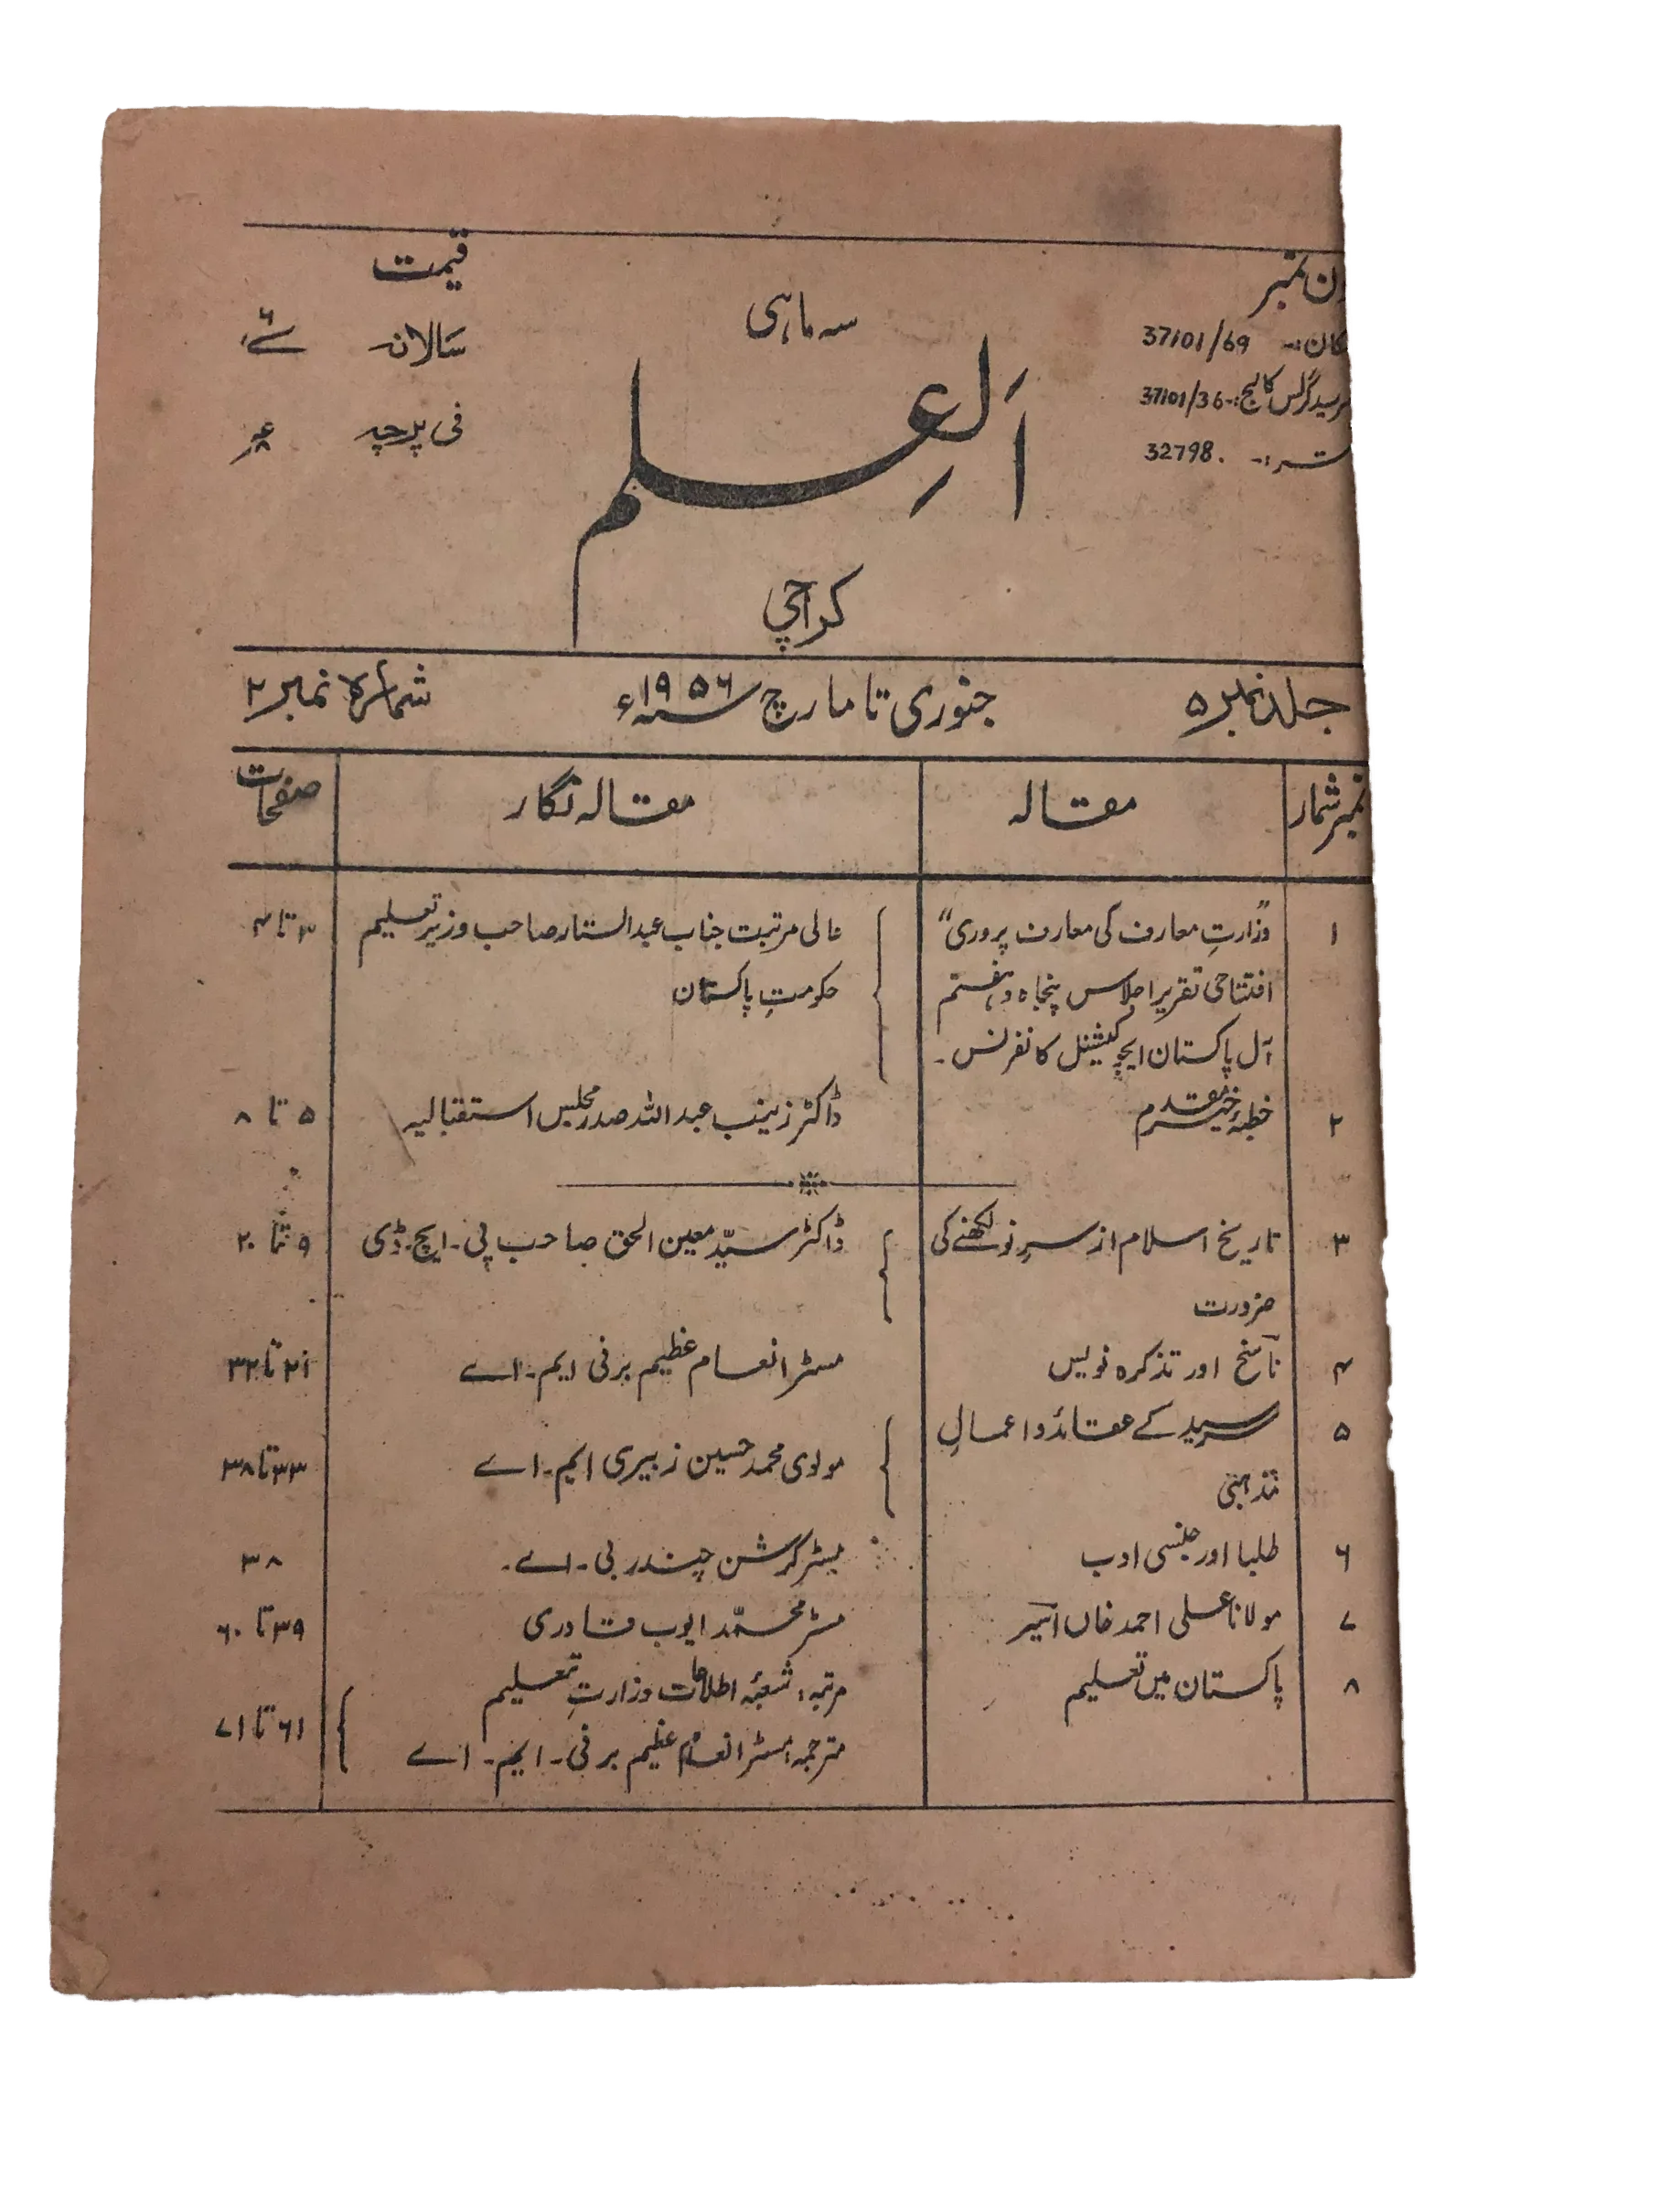 ن نمبر
کان:- 37101/69
سرسید گرلس کالج:- 37101/36
تر:- 32798.
سہ ماہی
اَلعِلم
کراچی
قیمت
سالانہ
فی پرچہ
جلد نمبر ۵
جنوری تا مارچ سنہ ۱۹۵۶ء
شمارہ نمبر ۲
نمبر شمار مقالہ مقالہ نگار صفحات
۱ "وزارتِ معارف کی معارف پروری" عالی مرتبت جناب عبدالستار صاحب وزیر تعلیم ۳ تا ۴
افتتاحی تقریر اجلاس پنجاہ و ہفتم حکومتِ پاکستان
آل پاکستان ایجوکیشنل کانفرنس۔
۲ خطبۂ خیر مقدم ڈاکٹر زینب عبداللہ صدر مجلس استقبالیہ ۵ تا ۸
۳ تاریخ اسلام از سرِ نو لکھنے کی ڈاکٹر سیّد معین الحق صاحب پی۔ ایچ۔ ڈی ۹ تا ۲۰
ضرورت
۴ ناسخ اور تذکرہ نویس مسٹر انعام عظیم برنی ایم۔ اے ۲۱ تا ۳۲
۵ سرسید کے عقائد و اعمالِ
مذہبی مولوی محمد حسین زبیری ایم۔ اے ۳۳ تا ۳۸
۶ طلبا اور جنسی ادب مسٹر کرشن چندر بی۔ اے۔ ۳۸
۷ مولانا علی احمد خاں اسیر مسٹر محمّد ایوب قادری ۳۹ تا ۶۰
۸ پاکستان میں تعلیم مرتبہ: شعبۂ اطلاعات وزارتِ تعلیم
مترجمہ: مسٹر انعام عظیم برنی۔ ایم۔ اے ۶۱ تا ۷۱